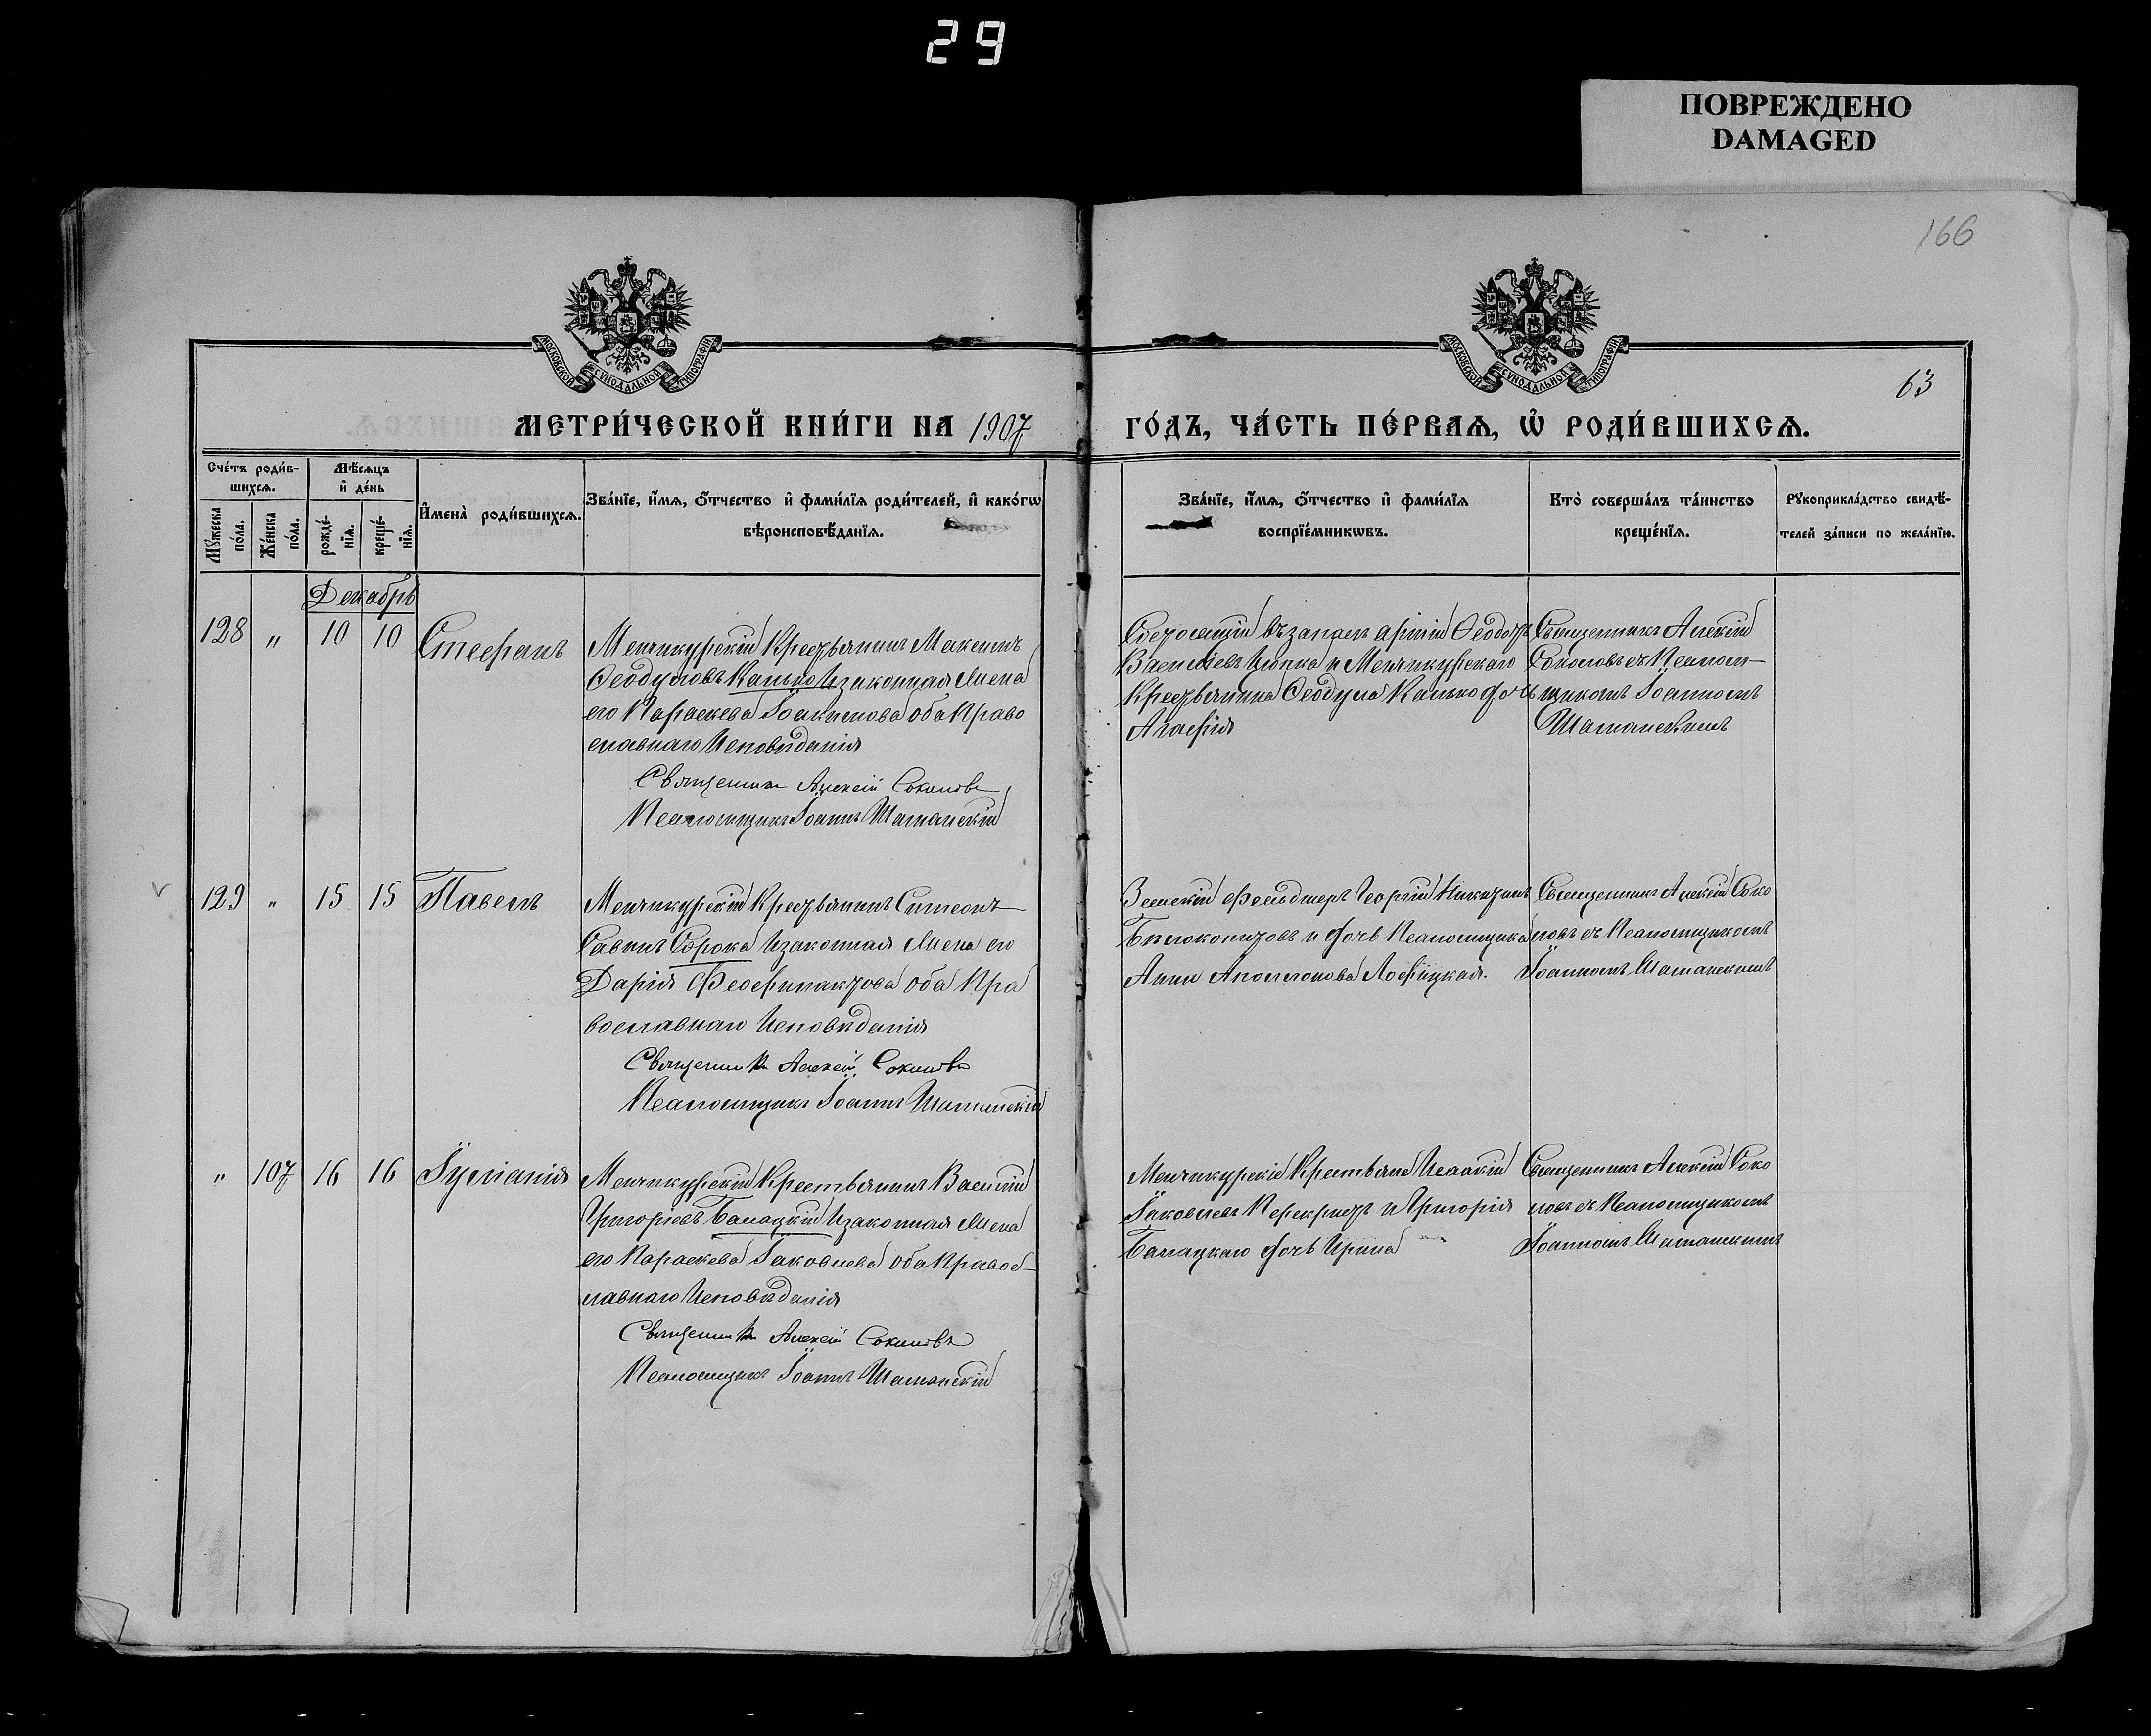 29
ПОВРЕЖДЕНО
DAMAGED
166
МОСКОВСКОЙ СѴНОДАЛЬНОЙ ТИПОГРАФІИ
МОСКОВСКОЙ СѴНОДАЛЬНОЙ ТИПОГРАФІИ
63
МЕТРИ́ЧЕСКОЙ КНИ́ГИ НА 1907
ГО́ДЪ, ЧА́СТЬ ПЕ́РВАѦ, Ѡ҆ РОДИ́ВШИХСѦ.
Сче́тъ роди́в-
шихсѧ.
Мꙋ́жеска по́ла.
Же́нска по́ла.
Мѣ́сѧцъ
и҆ де́нь
рожде́-
нїѧ.
креще́-
нїѧ.
И҆мена̀ роди́вшихсѧ.
Зва́нїе, и҆́мѧ, ѻ҆́тчество и҆ фами́лїѧ роди́телей, и҆ како́гѡ
вѣроисповѣ́данїѧ.
Зва́нїе, и҆́мѧ, ѻ҆́тчество и҆ фами́лїѧ
воспрїе́мникѡвъ.
Кто̀ соверша́лъ та́инство
креще́нїѧ.
Рꙋкоприкла́дство свидѣ́-
телей за́писи по жела́нїю.
Декабрь
128 „ 10 10 Стефанъ
Менчикурскій Крестьянинъ Максимъ
Феодуловъ Канько и законная жена
его Параскева Іоакимова оба Право
славнаго Исповѣданія
Священникъ Алексій Соколовъ
Псаломщикъ Іоаннъ Шаманскій
Состоящій въ запасѣ арміи Феодоръ
Васильевъ Цюпка и Менчикурскаго
Крестьянина Феодула Канько дочь
Агафія
Священникъ Алексій
Соколовъ съ Псалом-
щикомъ Іоанномъ
Шаманскимъ
129 „ 15 15 Павелъ
Менчикурскій Крестьянинъ Симеонъ
Саввинъ Сорока и законная жена его
Дарія Феофилактова оба Пра
вославнаго Исповѣданія
Священникъ Алексій Соколовъ
Псаломщикъ Іоаннъ Шаманскій
Земскій Фельдшеръ Георгій Никитинъ
Бѣлокопытовъ и дочь Псаломщика
Анна Аполлонова Лосицкая.
Священникъ Алексій Соко
ловъ съ Псаломщикомъ
Іоанномъ Шаманскимъ
„ 107 16 16 Іуліанія
Менчикурскій Крестьянинъ Василій
Григорьевъ Балацкій и законная жена
его Параскева Іаковлева оба Правос-
лавнаго Исповѣданія
Священникъ Алексій Соколовъ
Псаломщикъ Іоаннъ Шаманскій
Менчикурскіе Крестьяне Исаакій
Іаковлевъ Перекрестъ и Григорія
Балацкаго дочь Ирина
Священникъ Алексій Соко
ловъ съ Псаломщикомъ
Іоанномъ Шаманскимъ